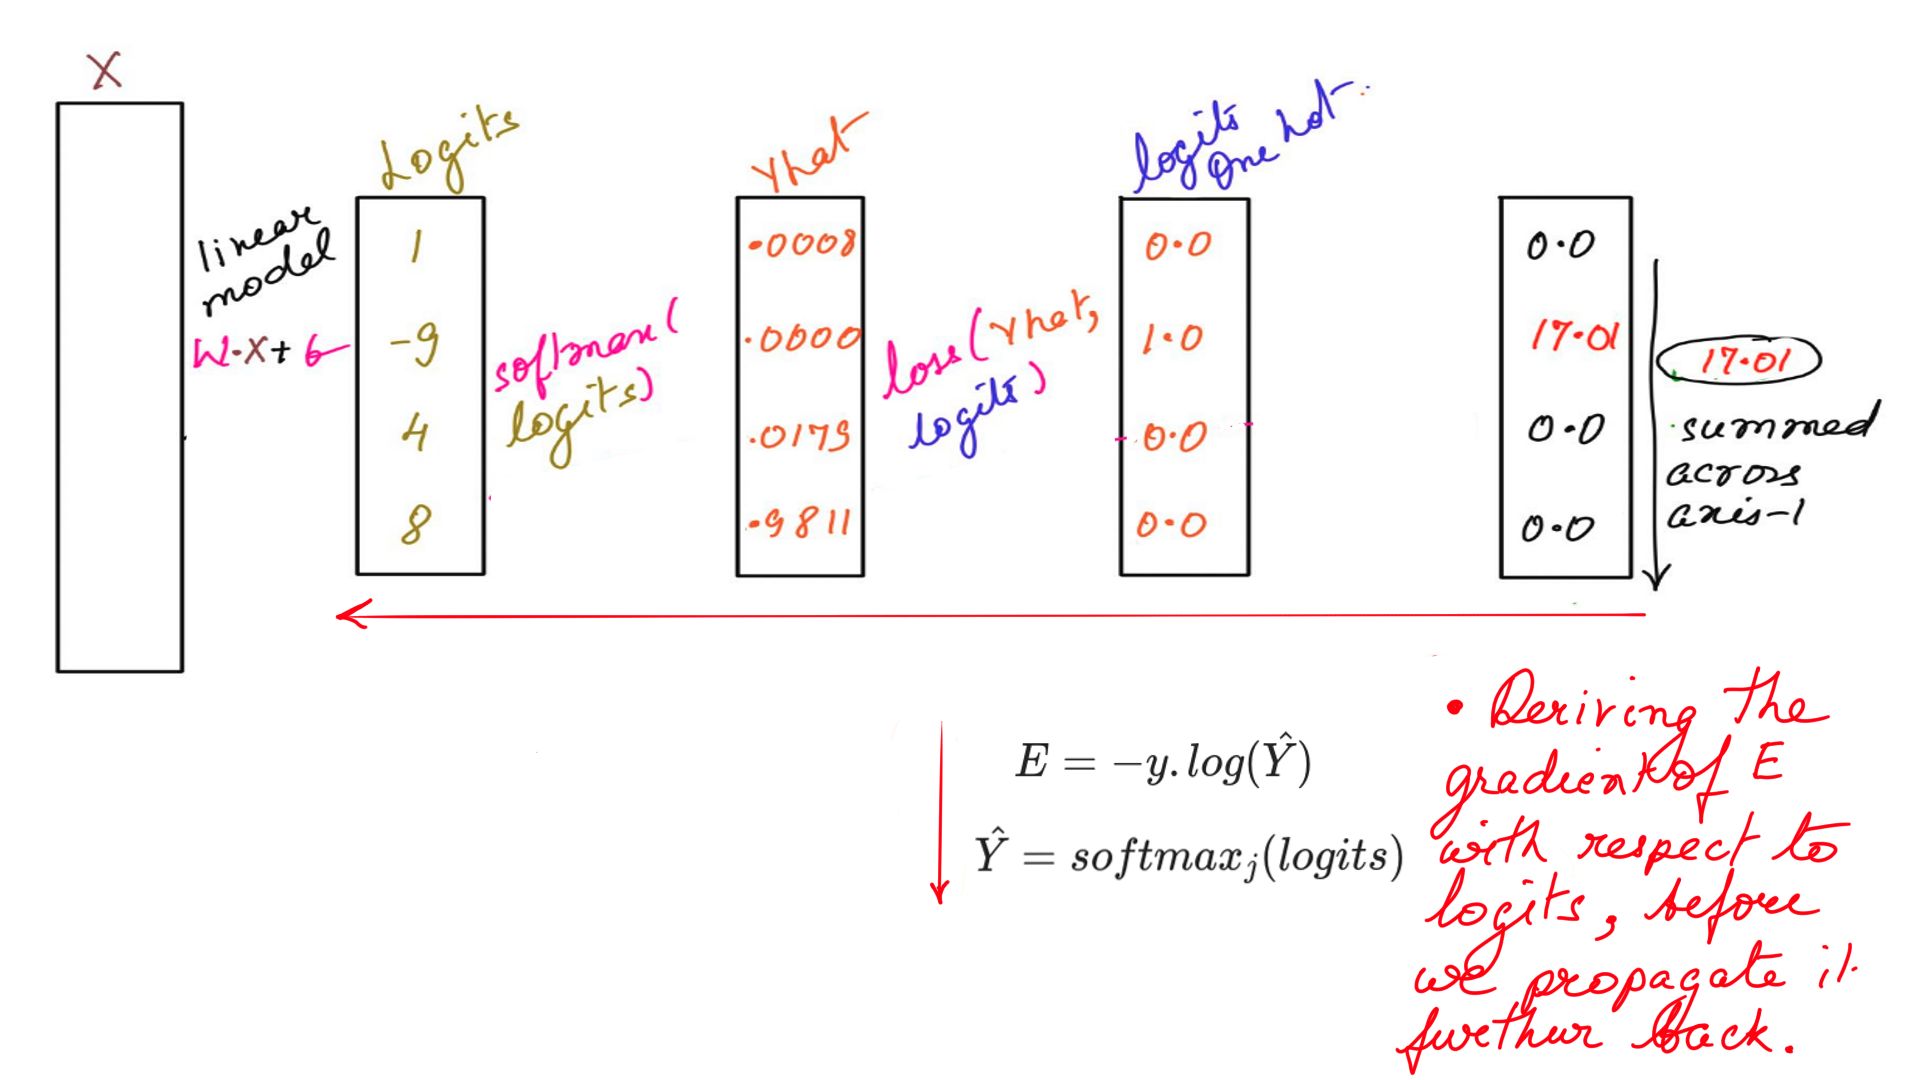 X
Logits
Yhat
logits
One hot
linear
model
W·X+b
1
-9
4
8
softmax(
logits)
·0008
·0000
·0179
·9811
loss(Yhat,
logits)
0·0
1·0
0·0
0·0
0·0
17·01
0·0
0·0
17·01
summed
across
axis-1
E = −y.log(Ŷ)
Ŷ = softmaxⱼ(logits)
• Deriving the
gradient of E
with respect to
logits, before
we propagate it
furthur back.